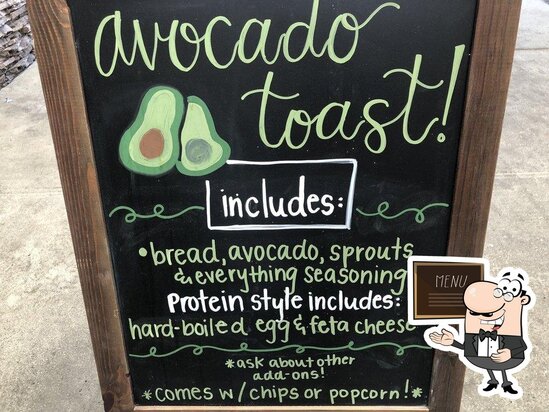 avocado
toast!
includes:
• bread, avocado, sprouts
& everything seasoning
Protein style includes:
hard-boiled egg & feta cheese
*ask about other
add-ons!
*comes w/ chips or popcorn!*
MENU